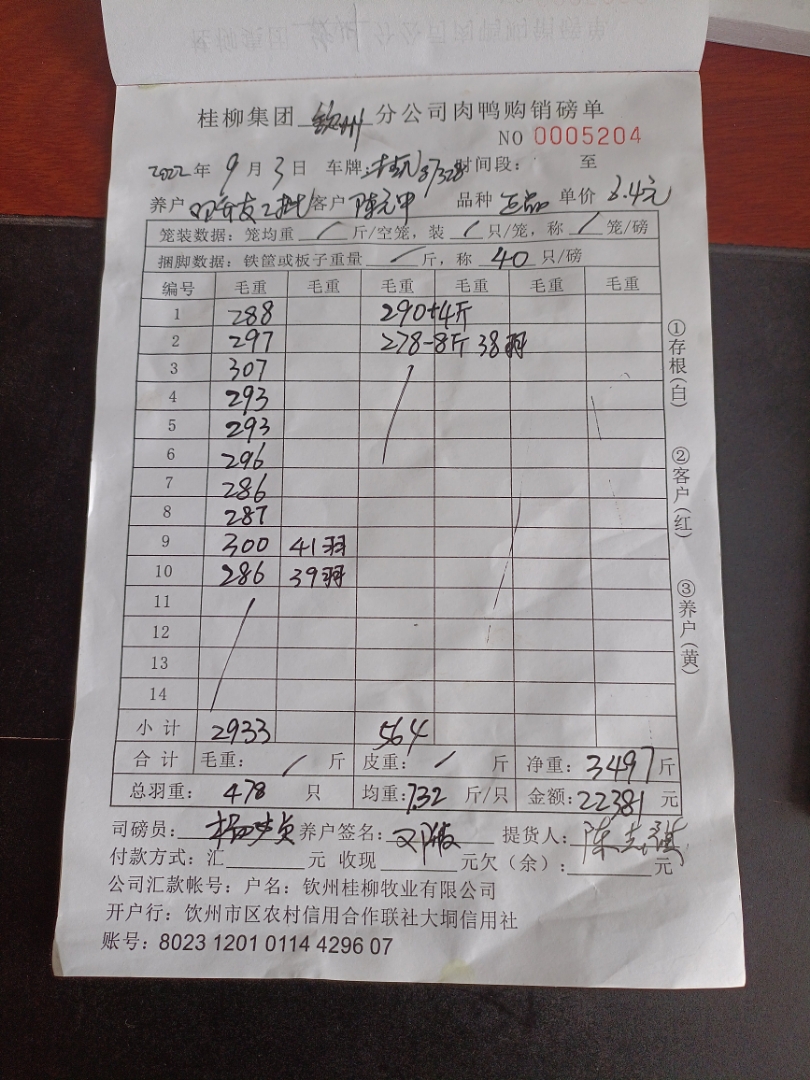 桂柳集团 钦州 分公司肉鸭购销磅单
NO 0005204
2022年 9月 3日 车牌: 87328 时间段: 至
养户 友2批 客户 陈元甲 品种 正品 单价 6.4元
笼装数据: 笼均重 / 斤/空笼, 装 / 只/笼, 称 / 笼/磅
捆脚数据: 铁筐或板子重量 / 斤, 称 40 只/磅
编号 毛重 毛重 毛重 毛重 毛重 毛重
1 288 290+4斤
2 297 278-8斤 38羽
3 307
4 293
5 293
6 296
7 286
8 287
9 300 41羽
10 286 39羽
11
12
13
14
小计 2933 564
合计 毛重: / 斤 皮重: / 斤 净重: 3497斤
总羽重: 478 只 均重: 7.32 斤/只 金额: 22381 元
司磅员: 养户签名: 提货人: 陈
付款方式: 汇 元 收现 元欠(余): 元
公司汇款帐号: 户名: 钦州桂柳牧业有限公司
开户行: 钦州市区农村信用合作联社大垌信用社
账号: 8023 1201 0114 4296 07
①存根(白)
②客户(红)
③养户(黄)